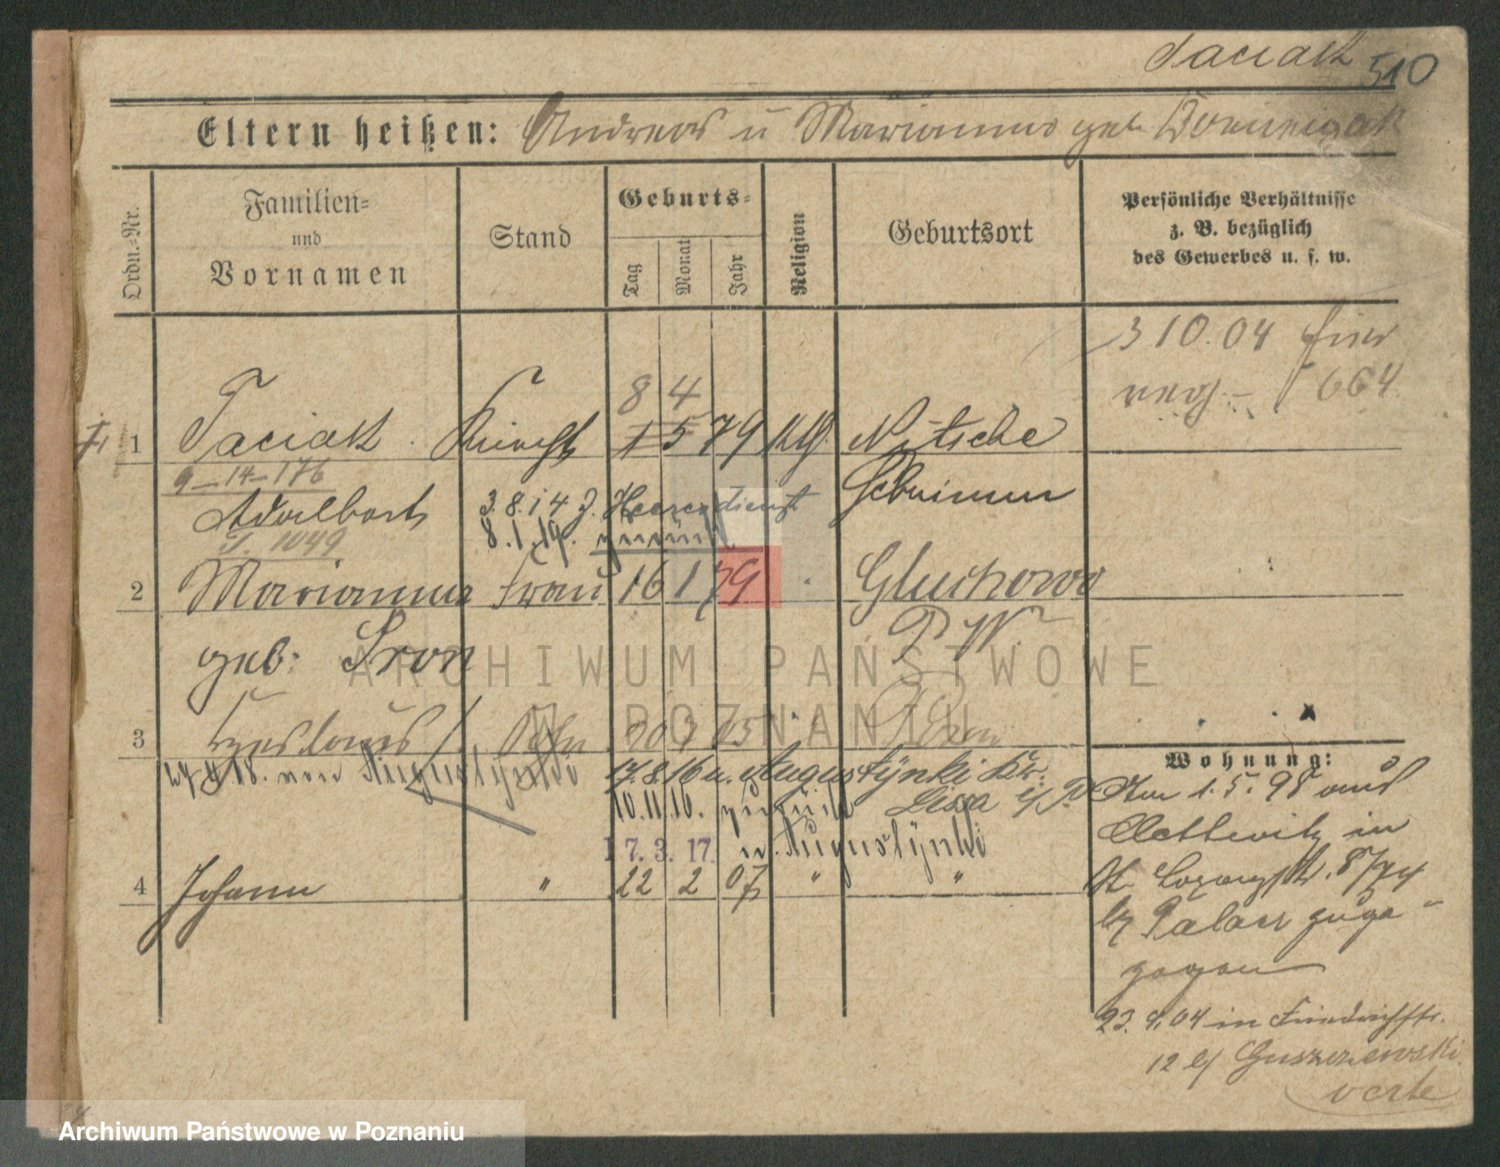 Taciak 510
Eltern heißen: Andreas u Marianna geb.
Ordn.-Nr.
Familien-
und
Vornamen
Stand
Geburts-
Tag
Monat
Jahr
Religion
Geburtsort
Persönliche Verhältnisse
z. B. bezüglich
des Gewerbes u. s. w.
3 10. 04 hier
664
8 4
1 Taciak Knecht 1 5 79 kth. Nitsche
9-14-176
Adalbert 3.8.14 z. Heeresdienst Schrimm
J. 1049 8.1.19. zurück
2 Marianna Frau 16 1 79 Gluchowo
geb: Sron P W.
3 Sohn 20 7 05 Posen
27 9 18. von Augustynki 17.8.16 u. Augustynki Kr.
10.11.16. zurück Lissa i/P.
17. 3. 17. n. Augustynki
4 Johann " 22 2 07 " "
Wohnung:
Am 1.5.98 aus
in
St. Lazarusstr. 8/74
b/ Palacz zuge-
zogen
23. 9. 04 in Friedrichstr.
12 b/ Guszczewski
verte
ARCHIWUM PAŃSTWOWE
W POZNANIU
Archiwum Państwowe w Poznaniu